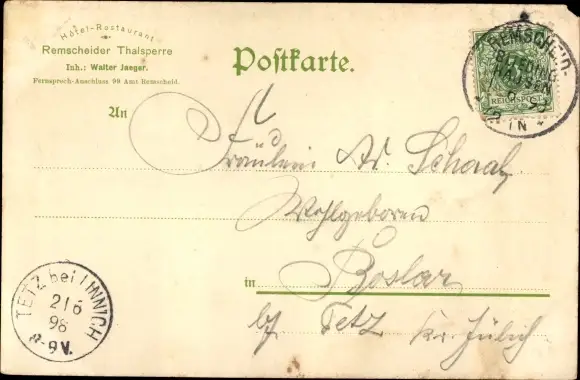 Hôtel-Restaurant
Remscheider Thalsperre
Inh.: Walter Jaeger.
Fernsprech-Anschluss 99 Amt Remscheid.
Postkarte.
REMSCHEID-
HAUSEN
REICHSPOST
An
Fräulein Ad. Schaaf
Wohlgeboren
in Boslar
bei Tetz Kr. Jülich
TETZ bei LINNICH
2/6
98
8-9V.